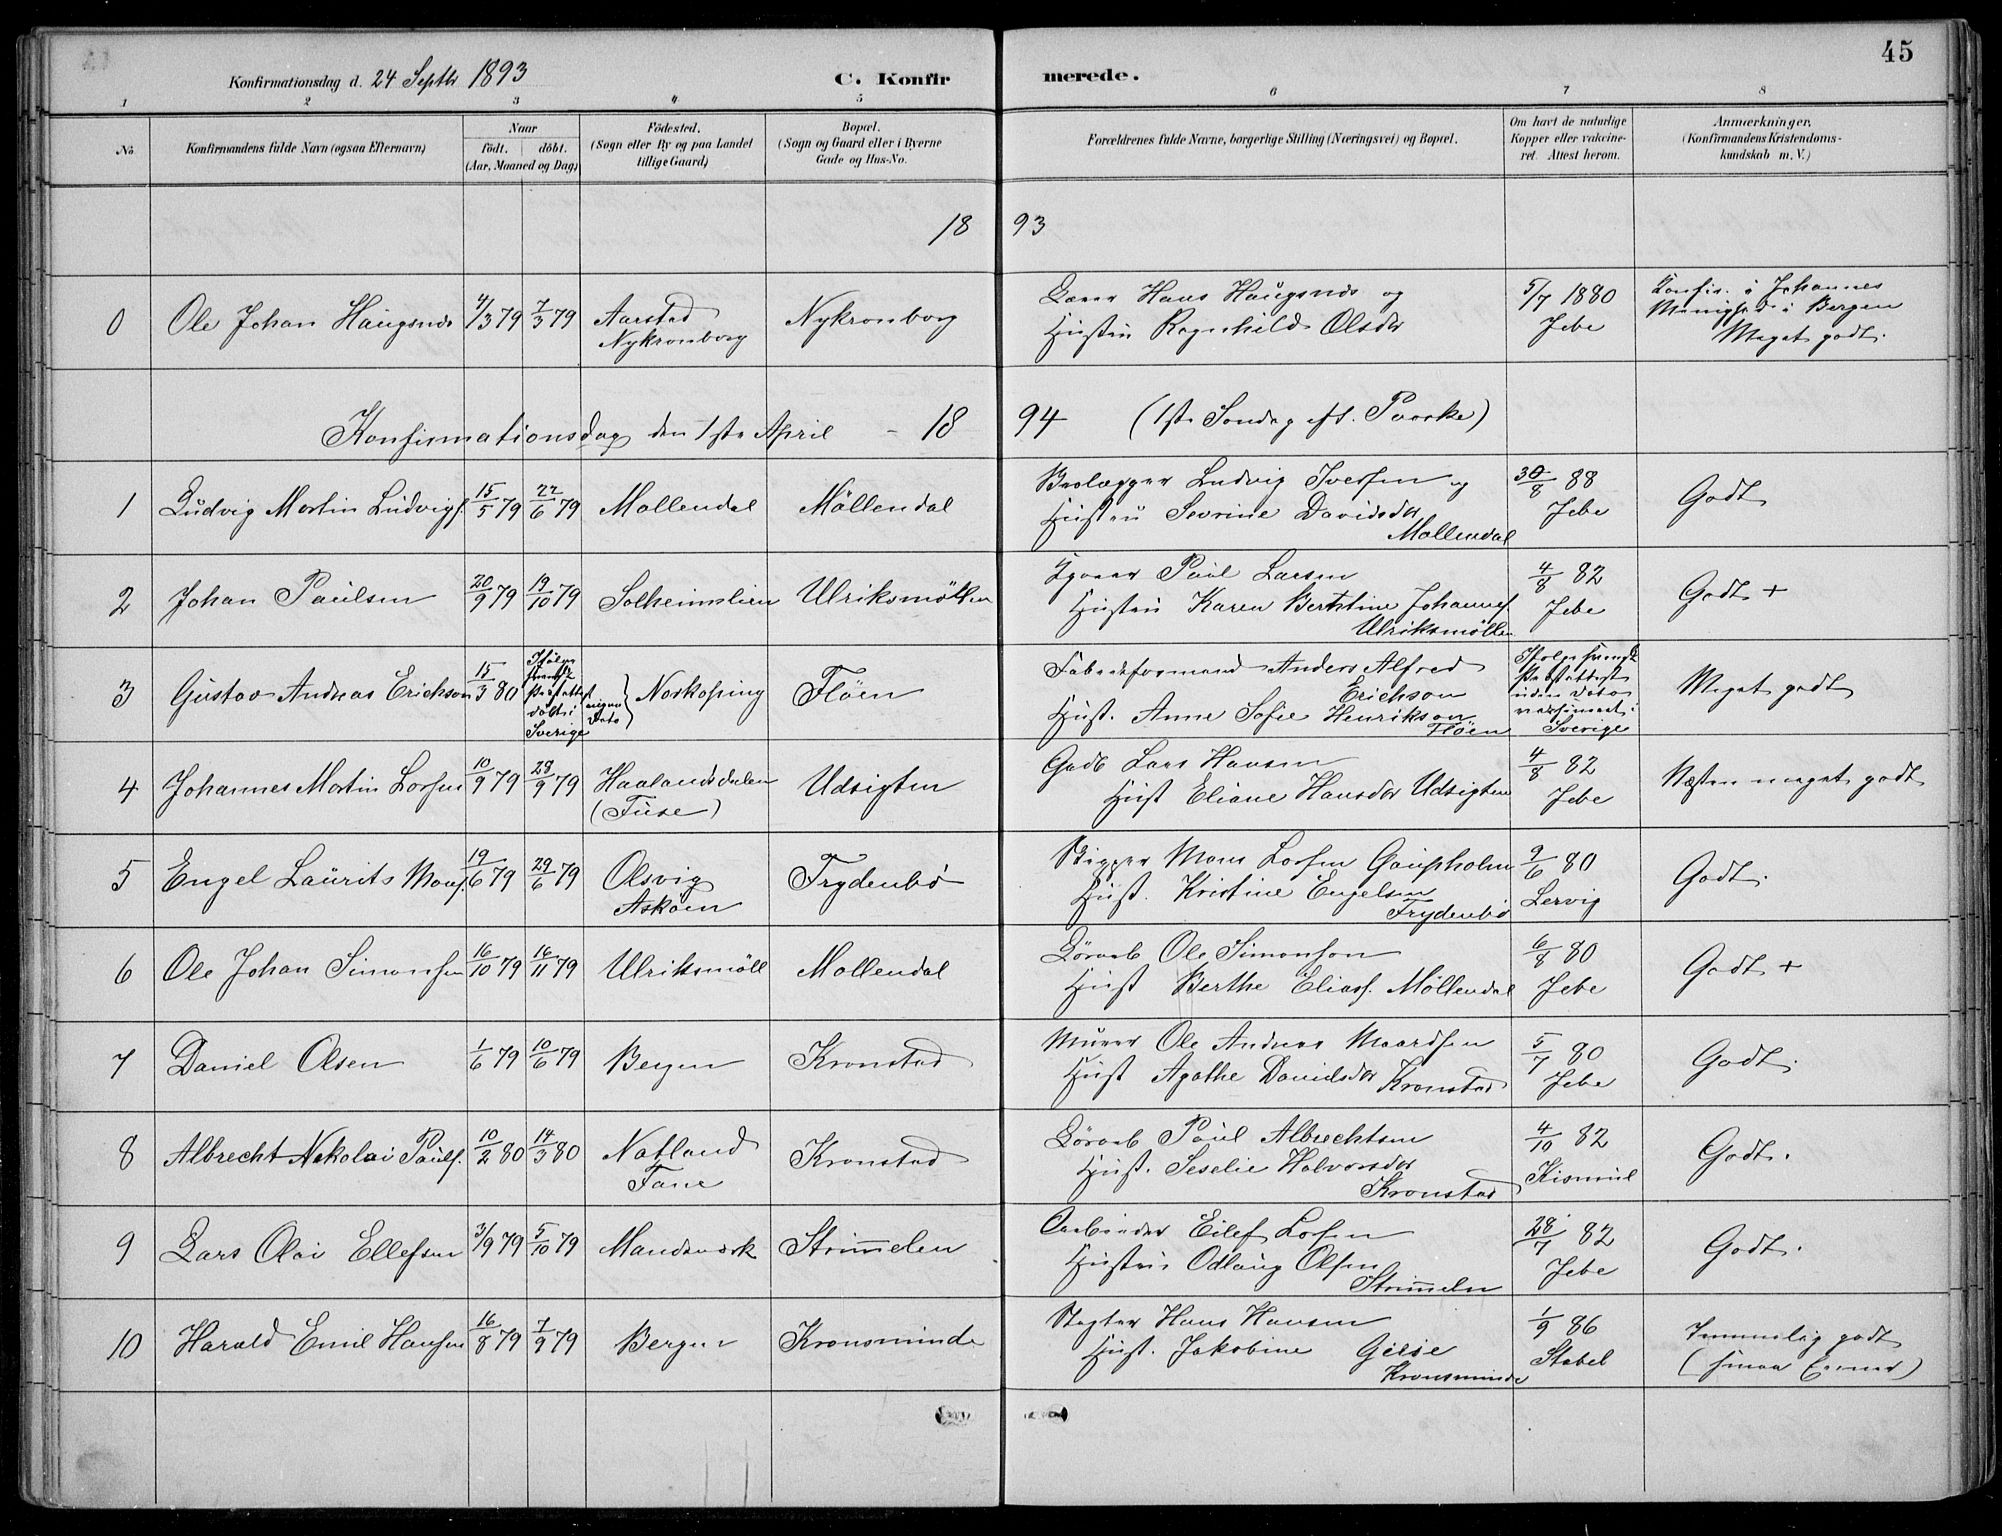 45
Konfirmationsdag d. 24 Septbr 1893
C. Konfirmerede.
1 2 3 4 5 6 7 8
No. Konfirmandens fulde Navn (ogsaa Efternavn) Naar födt. döbt. (Aar, Maaned og Dag) Födested. (Sogn eller By og paa Landet tillige Gaard) Bopæl. (Sogn og Gaard eller i Byerne Gade og Hus-No.
Forældrenes fulde Navne, borgerlige Stilling (Næringsvei) og Bopæl. Om havt de naturlige Kopper eller vakcineret. Attest herom. Anmærkninger. (Konfirmandens Kristendomskundskab m. V.)
1893
0 Ole Johan Haugsnes 4/3 79 7/3 79 Aarstad Nykronborg Nykronborg
Hans Haugsnes og Hustru Ragnhild Olsdr 5/7 1880 Jebe Konfir. i Johannes Menighed i Bergen Meget godt.
Konfirmationsdag den 1ste April - 1894 (1ste Søndag eft. Paaske)
1 Ludvig Martin Ludvigs. 15/5 79 22/6 79 Mollendal Möllendal
Brolægger Ludvig Iversen og Hustru Sevrine Davidsdr Mollendal 30/8 88 Jebe Godt
2 Johan Paulsen 20/9 79 19/10 79 Solheimslien Ulriksmöllen
Paul Larsen Hustru Karen Bertine Johannes. Ulriksmöllen 4/8 82 Jebe Godt +
3 Gustav Andreas Erickson 15/3 80 Ifølge döbt i Sverige uden Dato Norkøping Fløen
Fabrikformand Anders Alfred Erichson Hust. Anne Sofie Henrikson Fløen uden Dato i Sverige Meget godt
4 Johannes Martin Larsen 10/9 79 28/9 79 Haalandsdalen (Fuse) Udsigten
Gadb Lars Hansen Hust Eliane Hansdr Udsigten 4/8 82 Jebe Næsten meget godt
5 Engel Laurits Mons. 19/6 79 29/6 79 Olsvig Askøen Frydenbø
Rigger Mons Larsen Gaupholm Hust. Kristine Engelsen Frydenbø 9/6 80 Lervig Godt.
6 Ole Johan Simonsen 16/10 79 16/11 79 Ulriksmöll Mollendal
Ole Simonson Hust Berthe Elias. Möllendal 6/8 80 Jebe Godt +
7 Daniel Olsen 1/6 79 10/6 79 Bergen Kronstad
Murer Ole Andreas Hust Agathe Davidsdr Kronstad 5/7 80 Jebe Godt.
8 Albrecht Nikolai Pauls. 10/2 80 14/3 80 Natland Fane Kronstad
Paul Albrechtsen Hust. Seselie Halvorsdr Kronstad 4/10 82 Godt.
9 Lars Olai Ellefsen 3/9 79 5/10 79 Strimmelen
Arbeider Eilef Larsen Hustru Odlaug Olsen Strimmelen 28/7 82 Jebe Godt.
10 Harald Emil Hansen 16/8 79 7/9 79 Bergen Kronsminde
Slagter Hans Hansen Hust. Jakobine Kronsminde 1/9 86 Stabel Temmelig godt